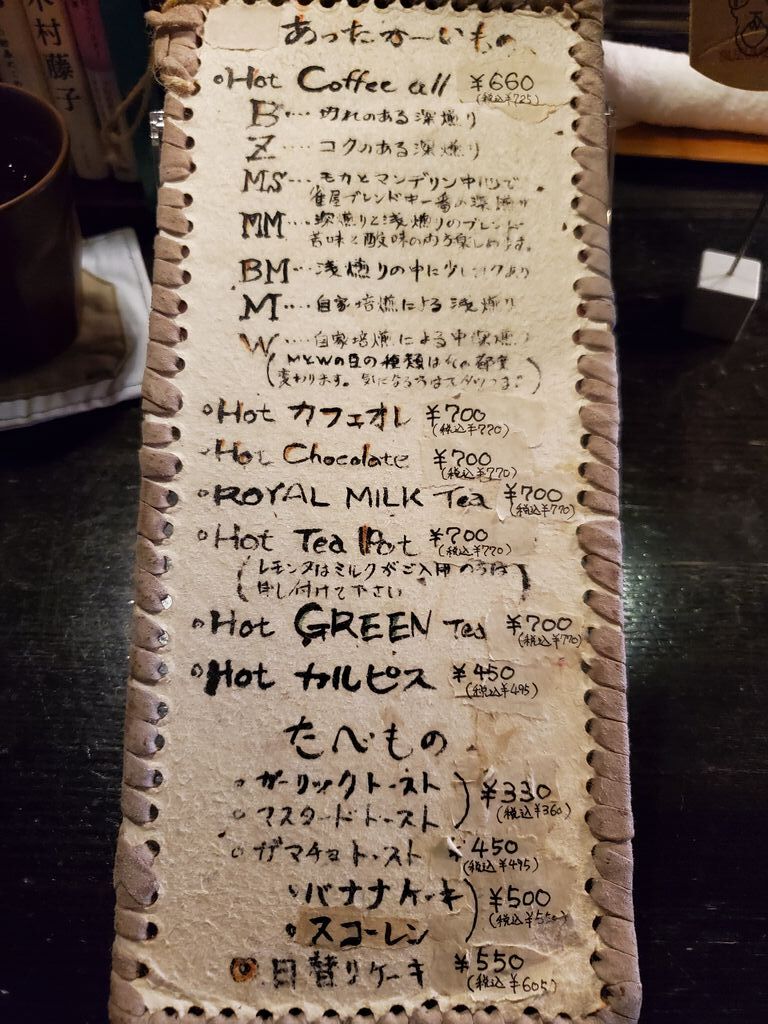 木村藤子
あったかーいもの
Hot Coffee all ¥660
(税込¥725)
B‥‥切れのある深煎り
Z‥‥コクのある深煎り
MS‥‥モカとマンデリン中心で
雀屋ブレンド中一番の深煎り
MM‥‥深煎りと浅煎りのブレンド
苦味と酸味の両方楽しめます。
BM‥‥浅煎りの中に少しコクあり
M‥‥自家焙煎による浅煎り
W‥‥自家焙煎による中深煎り
(MとWの豆の種類はその都度
変わります。気になる方は
Hot カフェオレ ¥700
(税込¥770)
Hot Chocolate ¥700
(税込¥770)
ROYAL MILK Tea ¥700
(税込¥770)
Hot Tea Pot ¥700
(税込¥770)
(レモン又はミルクがご入用の方は
申し付けて下さい)
Hot GREEN Tea ¥700
(税込¥770)
Hot カルピス ¥450
(税込¥495)
たべもの
ガーリックトースト
マスタードトースト
¥330
(税込¥360)
ガマチョトースト ¥450
(税込¥495)
バナナケーキ
スコーレン
¥500
(税込¥550)
日替りケーキ ¥550
(税込¥605)